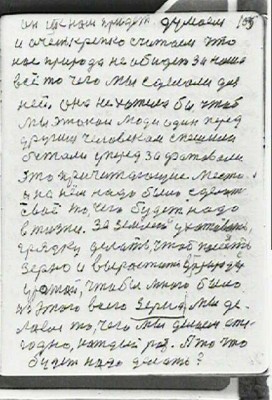 он к нам придёт думаем 105
и очень крепко считаем что
нас природа не обидит за наше
всё то чего мы сделали для
ней. она не хотела бы чтоб
мы такой люди один перед
другим человеком спешили
бежали упёред захватовали
это причитающее место.
и на нём надо было сделать
своё то, чего будет надо
в жизни. За землёй ухаживать
грядку делать, чтоб посеять
зерно и вырастить в природе
урожай, чтобы много было
из этого всего зерна, мы де-
лаем то, чего мы делаем еже-
годно, каждый раз. А то что
будет надо делать?